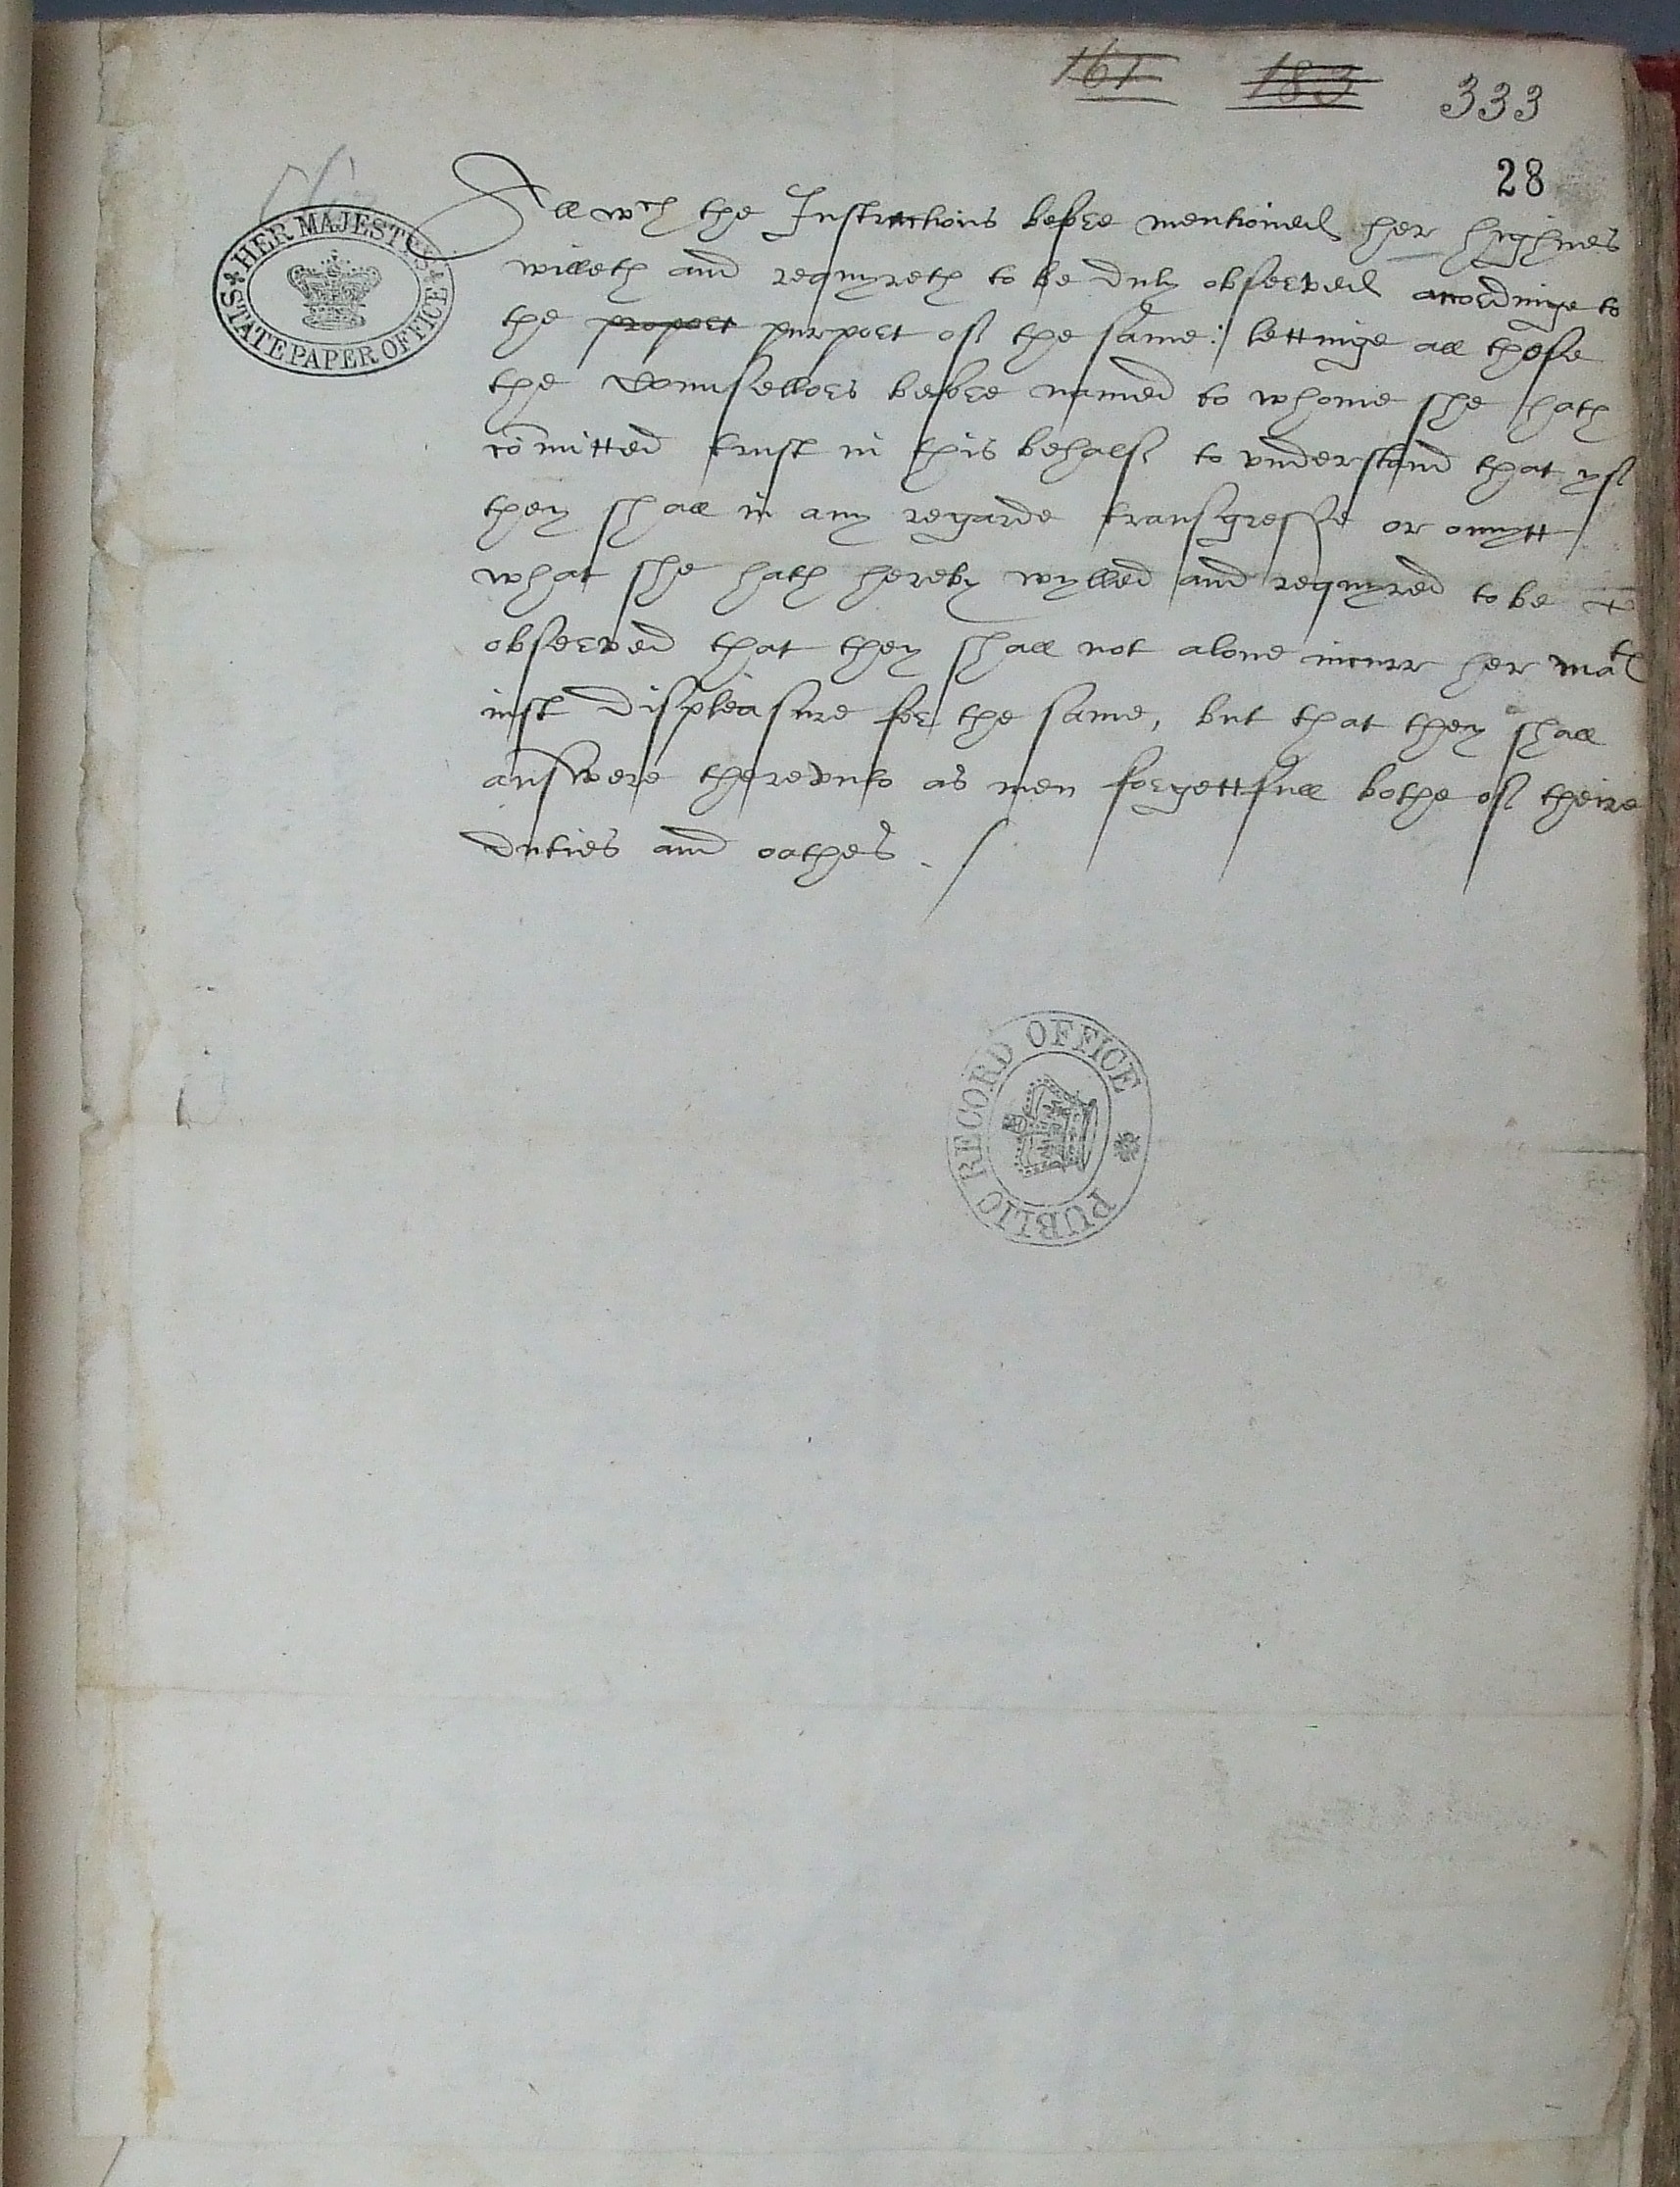 161 183 333
28
HER MAJESTY'S STATE PAPER OFFICE
All wch the Instructions before mentioned her highnes
willeth and requyreth to be duly observed accordinge to
the proport purport of the same: lettinge all those
the Counsellors before named to whome she hath
comitted trust in this behalf to understand that yf
they shall in any regarde transgresse or omytt
what she hath hereby wylled and requyred to be
observed that they shall not alone incurr her matis
iust displeasure for the same, but that they shall
answere therevnto as men forgettfull bothe of theire
duties and oathes ./
PUBLIC RECORD OFFICE